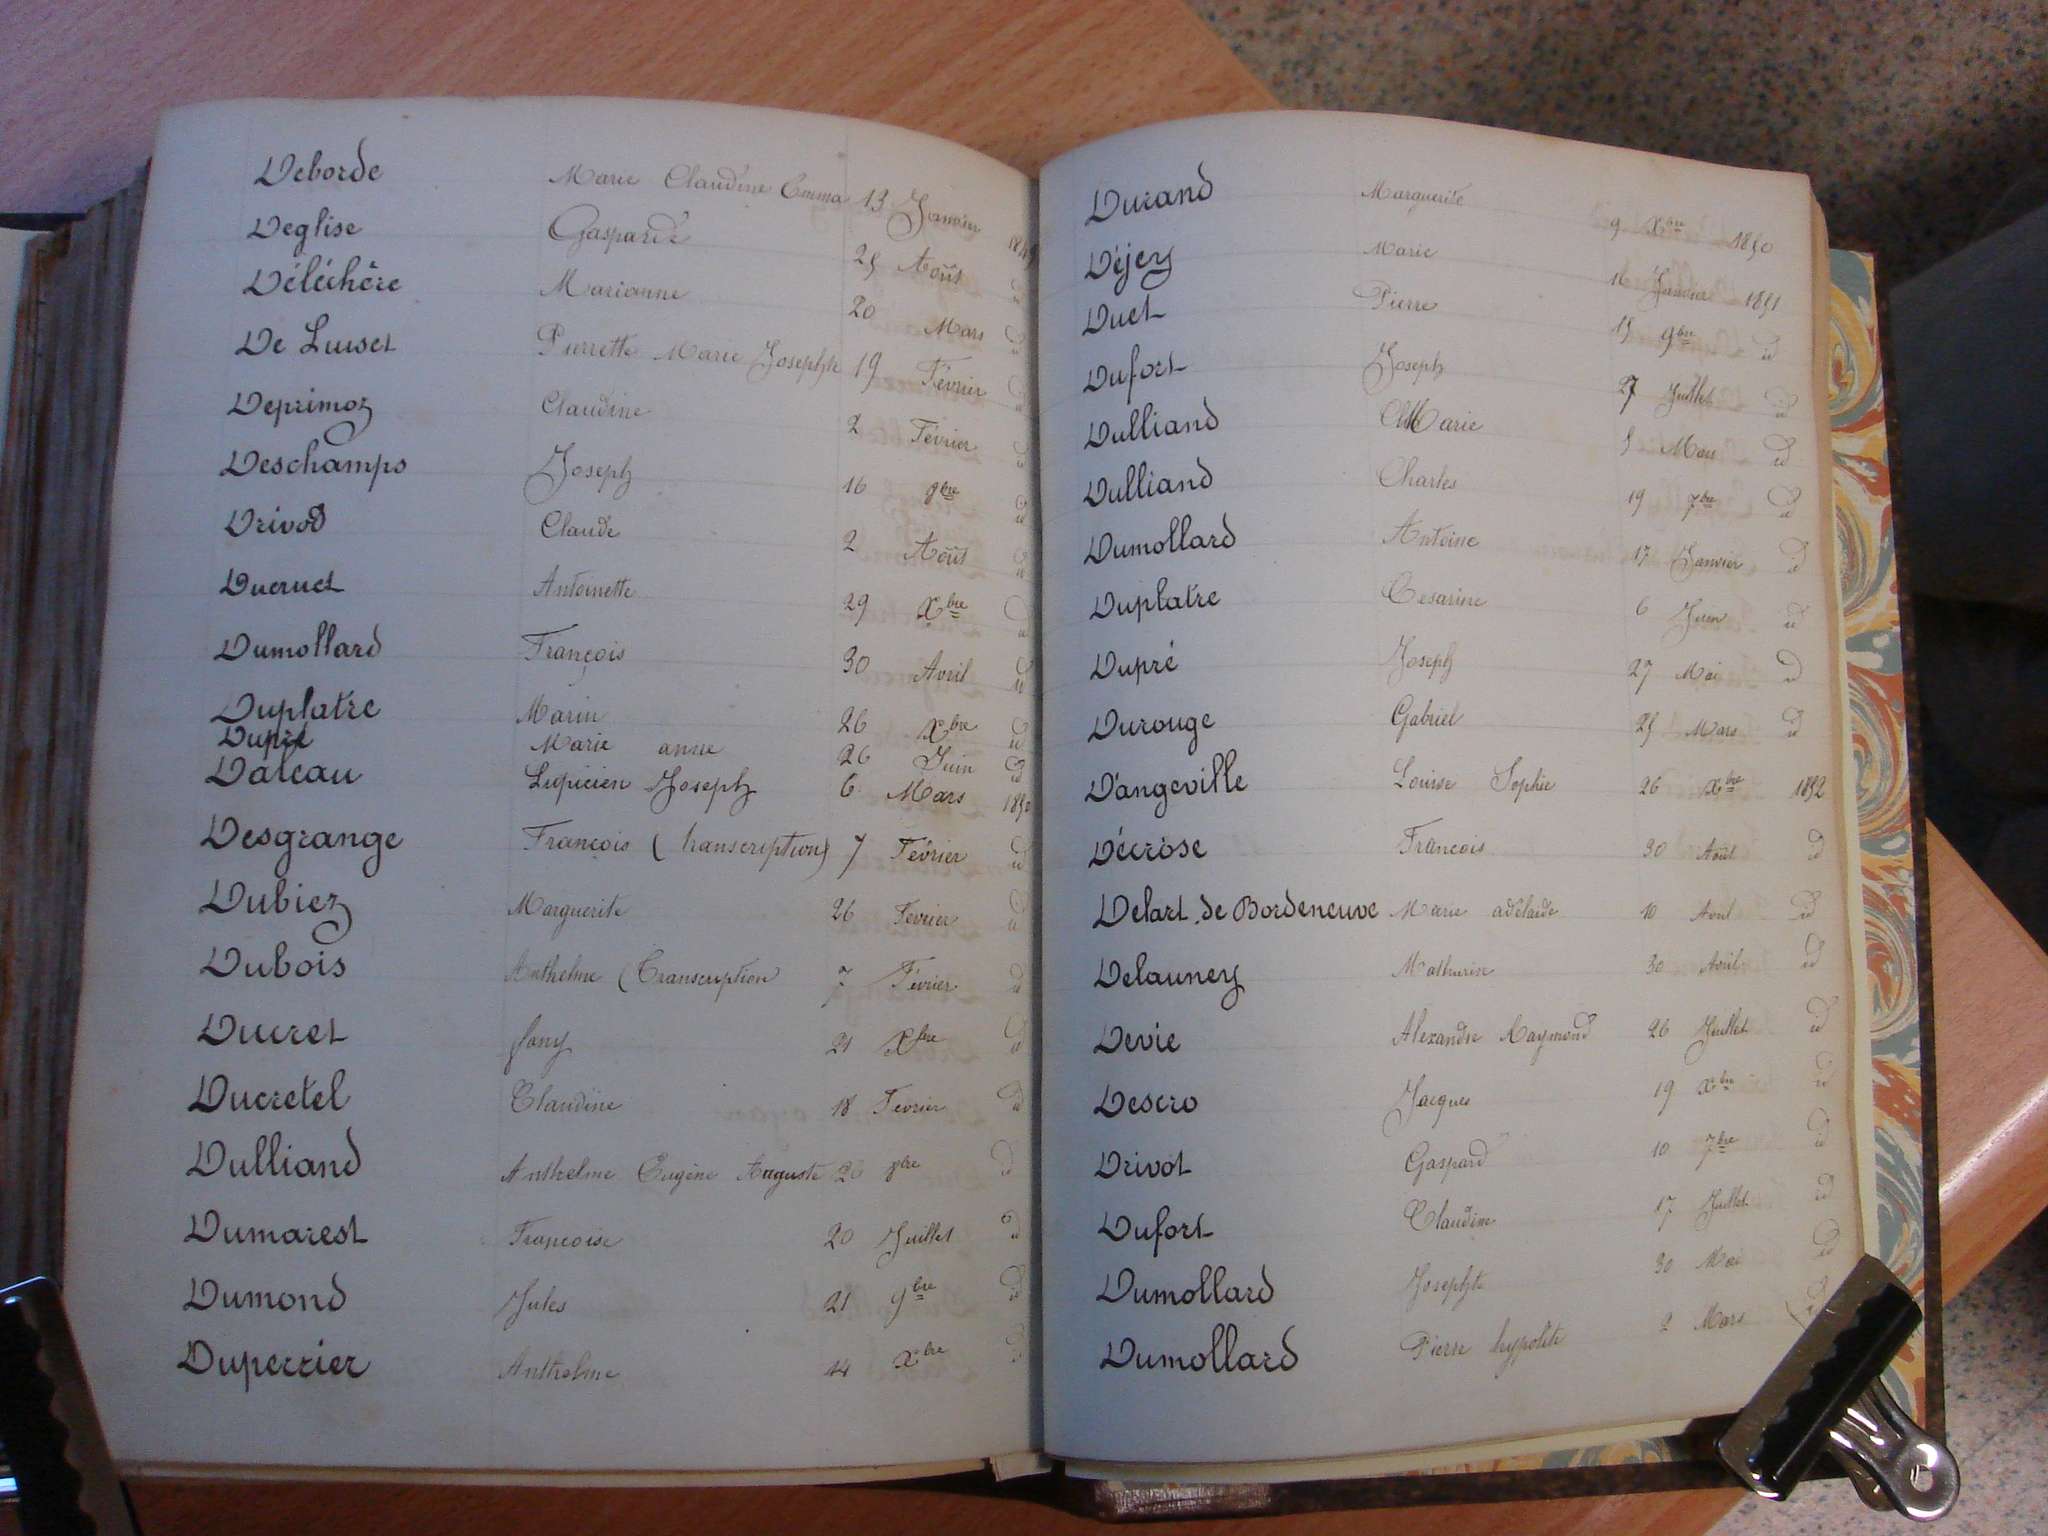 Deborde Marie Claudine Emma 13 Janvier
Deglise Gasparde 25 Août id
Déléchère Marianne 20 Mars id
De Luiset Pierrette Marie Josephte 19 Février id
Deprimoz Claudine 2 Février id
Deschamps Joseph 16 9bre id
Drivod Claude 2 Août id
Ducruet Antoinette 29 Xbre id
Dumollard François 30 Avril id
Duplatre Marin 26 Xbre id
Dupré Marie anne 26 Juin id
Daleau Lupicien Joseph 6 Mars 1850
Desgrange François (transcription) 7 Février id
Dubiez Marguerite 26 Fevrier id
Dubois Anthelme (Transcription 7 Février id
Ducret fany 21 Xbre id
Ducretel Claudine 18 Fevrier id
Dulliand Anthelme Eugène Auguste 26 8bre id
Dumarest Francoise 20 Juillet id
Dumond Jules 21 9bre id
Duperrier Anthelme 14 Xbre id
Durand Marguerite 9 Xbre 1850
Déjey Marie 16 Janvier 1851
Duet Pierre 15 9bre id
Dufort Joseph 27 Juillet id
Dulliand Marie 5 Mars id
Dulliand Charles 19 7bre id
Dumollard Antoine 17 Janvier id
Duplatre Cesarine 6 Juin id
Dupré Joseph 27 Mai id
Durouge Gabriel 25 Mars id
D'angeville Louise Sophie 26 Xbre 1852
Décrose Francois 30 Août id
Delart de Bordeneuve Marie adelaide 10 Avril id
Delauney Mathurin 30 Août id
Devie Alexandre Raymond 26 Juillet id
Descro Jacques 19 Xbre id
Drivot Gaspard 10 7bre id
Dufort Claudine 17 Juillet id
Dumollard Josephte 30 Mai id
Dumollard Pierre hypolite 2 Mars id